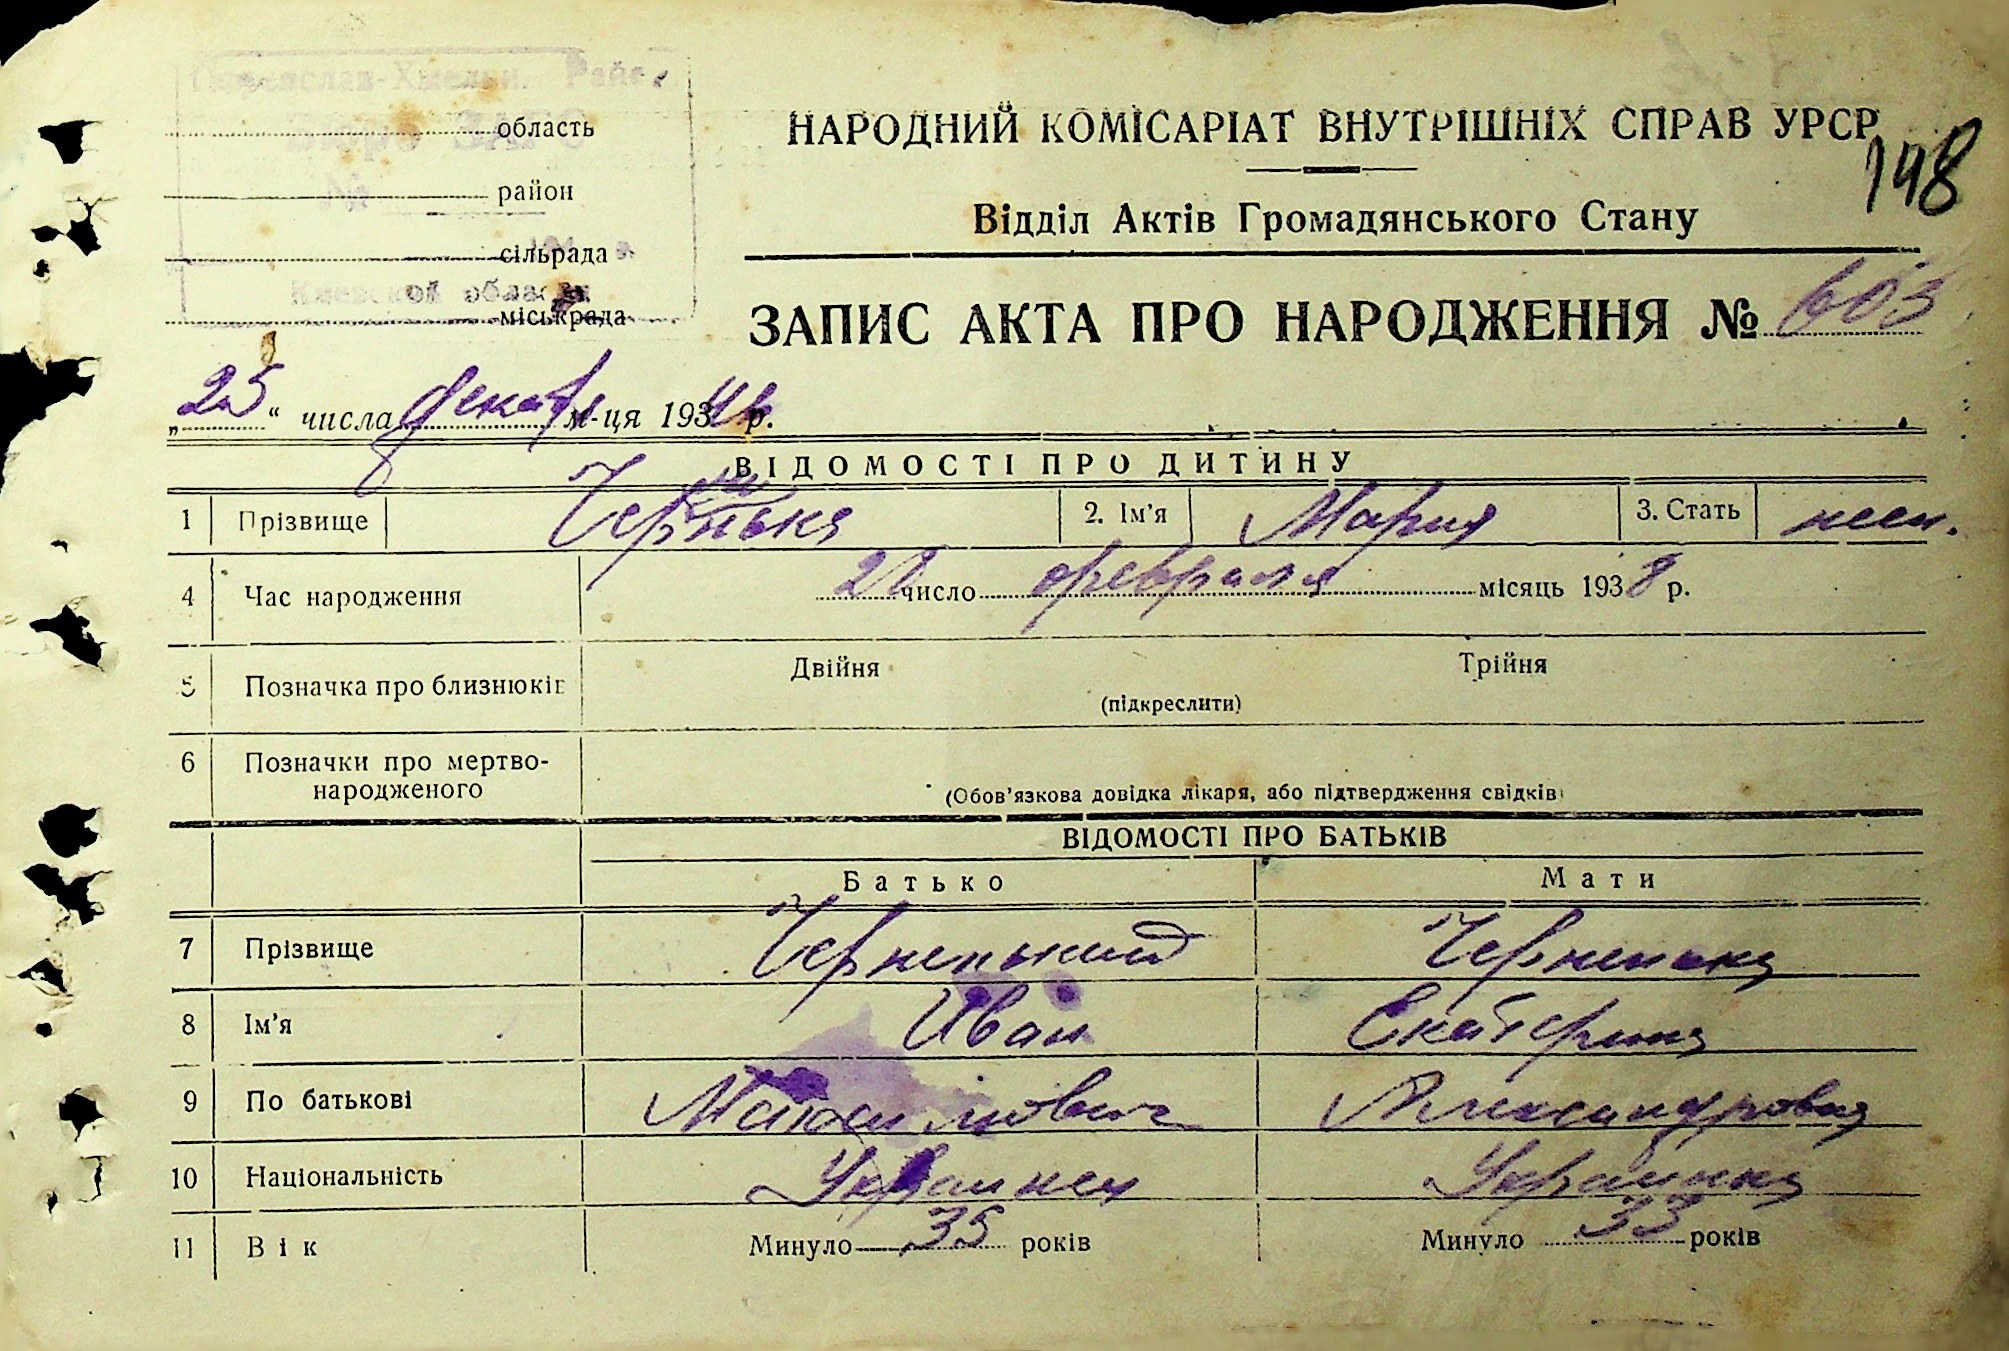 Переяслав-Хмельн. Рай
Бюро ЗАГС
область
№
район
сільрада
области
міськрада
НАРОДНИЙ КОМІСАРІАТ ВНУТРІШНІХ СПРАВ УРСР
148
Відділ Актів Громадянського Стану
ЗАПИС АКТА ПРО НАРОДЖЕННЯ № 603
„25“ числа декабр м-ця 1944 р.
ВІДОМОСТІ ПРО ДИТИНУ
1 Прізвище 2. Ім'я Мария 3. Стать жен.
4 Час народження 28 число февраля місяць 1938 р.
5 Позначка про близнюків Двійня Трійня
(підкреслити)
6 Позначки про мертво-
народженого
(Обов'язкова довідка лікаря, або підтвердження свідків)
ВІДОМОСТІ ПРО БАТЬКІВ
Батько Мати
7 Прізвище Черненький Черненька
8 Ім'я Иван Екатерина
9 По батькові Максимович Александровна
10 Національність Украинец Украинка
11 Вік Минуло 35 років Минуло 33 років